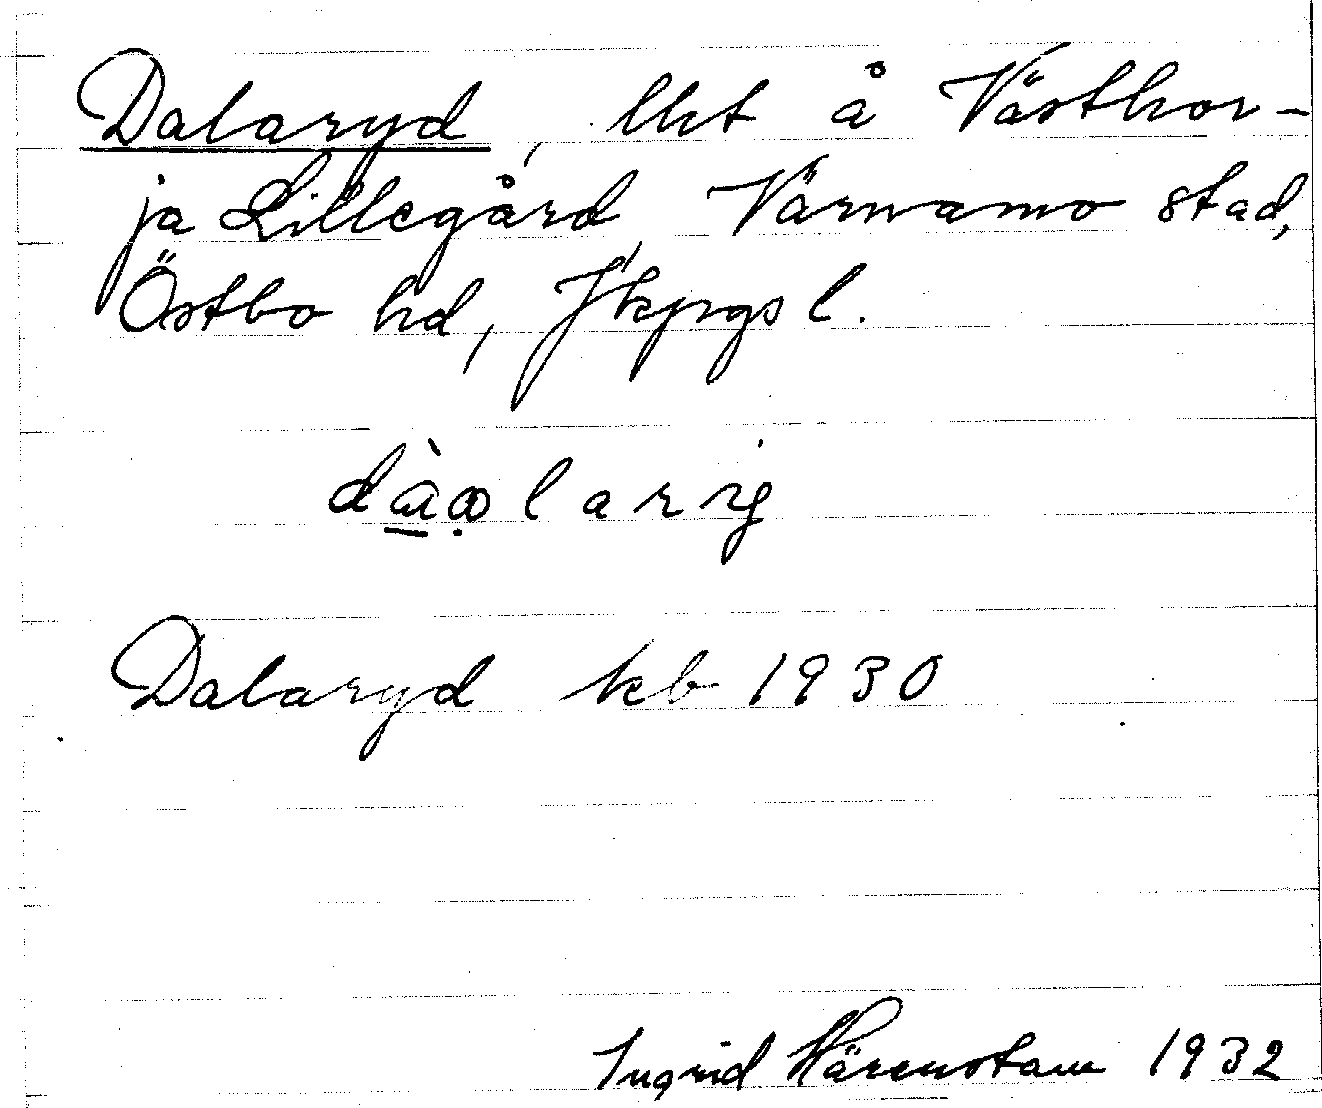 Dalaryd, lht å Västhor-
ja Lillegård, Värnamo stad,
Östbo hd, Jkpgs l.
Dalaryd kb 1930
Ingrid Härenstam 1932